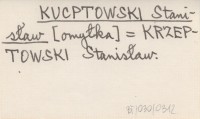 KUCPTOWSKI Stani-
sław [omyłka] = KRZEP-
TOWSKI Stanisław.